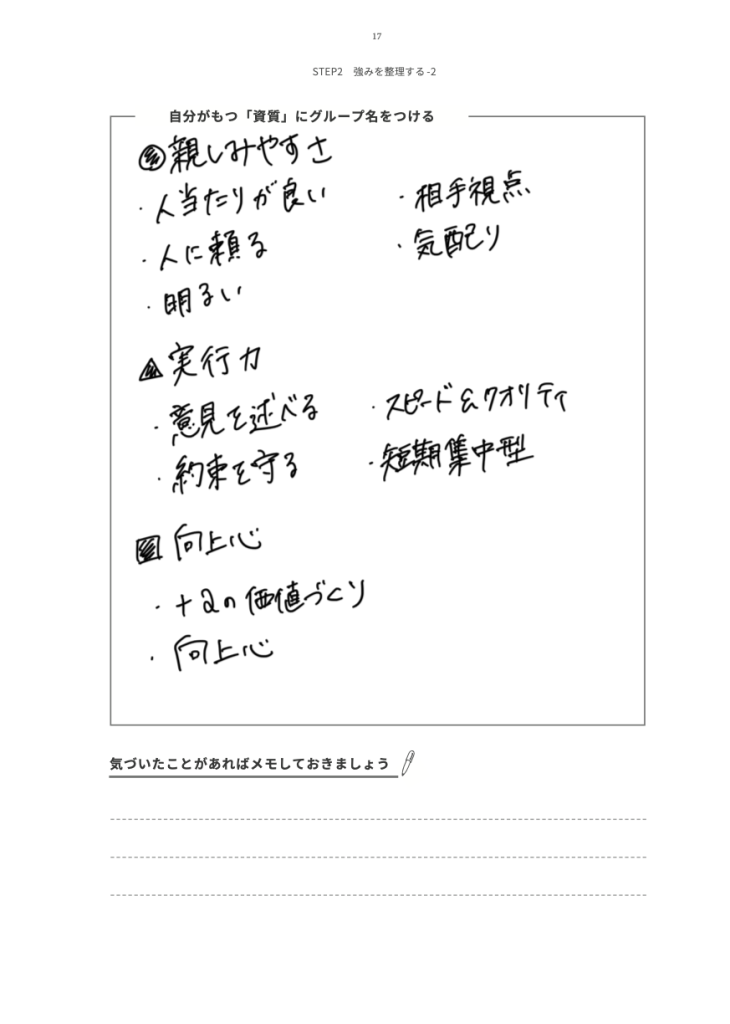 17
STEP2 強みを整理する -2
自分がもつ「資質」にグループ名をつける
親しみやすさ
・人当たりが良い
・人に頼る
・明るい
・相手視点
・気配り
実行力
・意見を述べる
・約束を守る
・スピード&クオリティ
・短期集中型
向上心
・+αの価値づくり
・向上心
気づいたことがあればメモしておきましょう